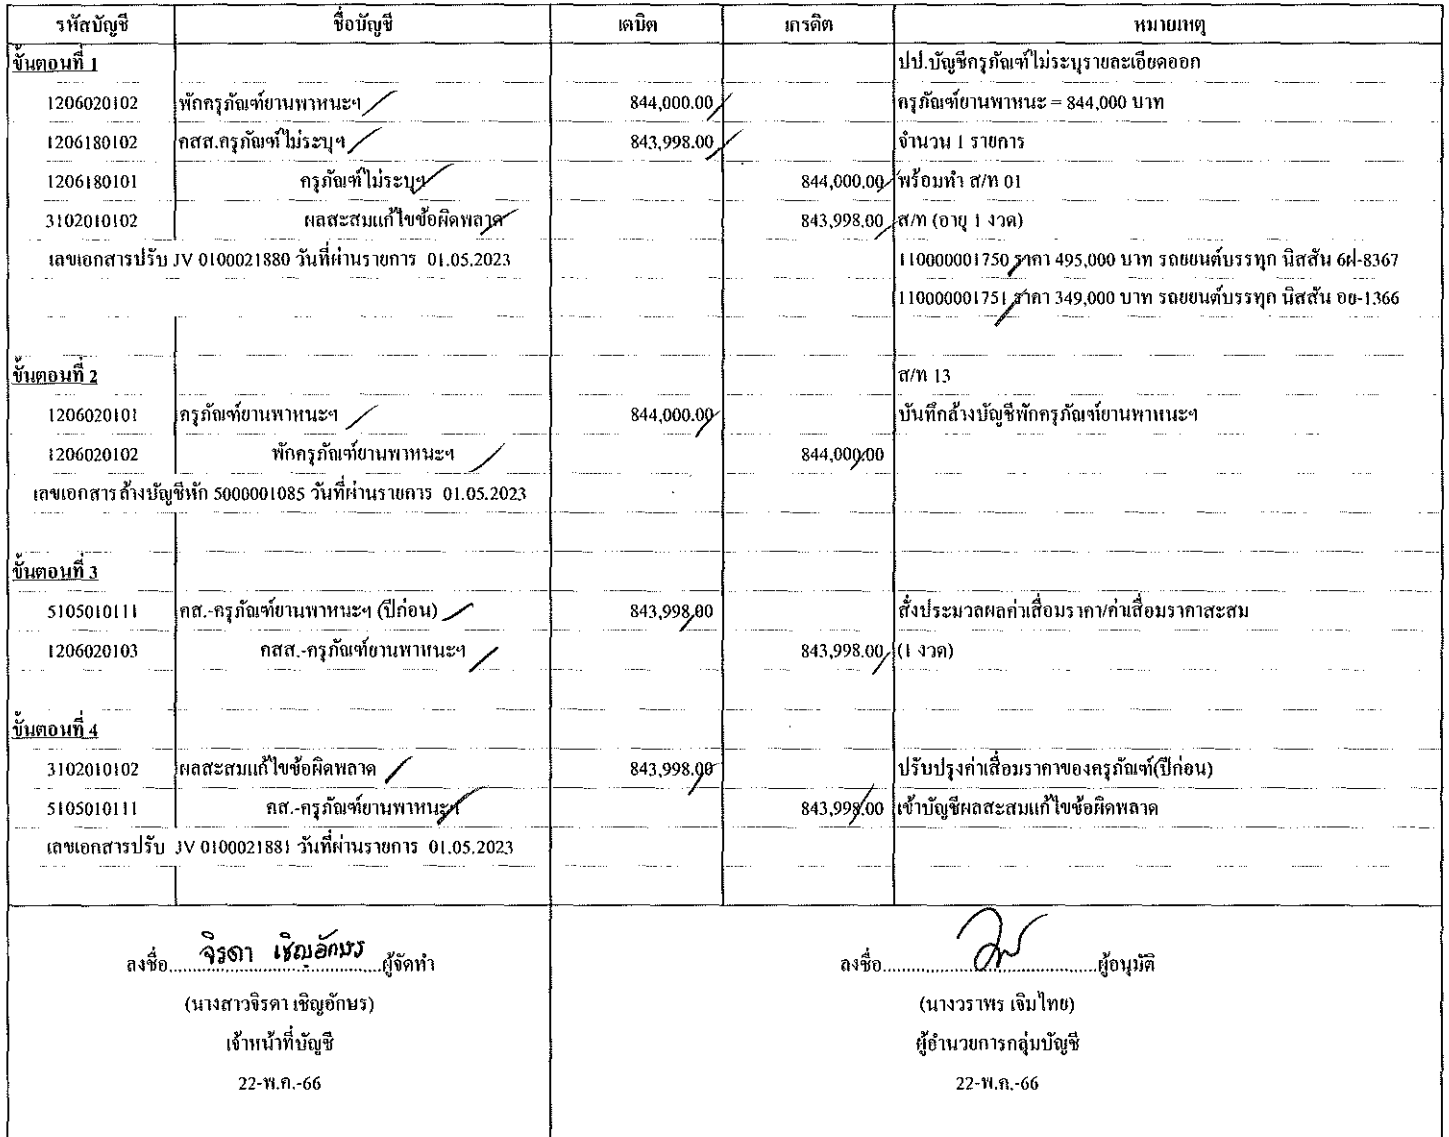 รหัสบัญชี ชื่อบัญชี เดบิต เครดิต หมายเหตุ
ขั้นตอนที่ 1 ปป.บัญชีครุภัณฑ์ไม่ระบุรายละเอียดออก
1206020102 พักครุภัณฑ์ยานพาหนะฯ 844,000.00 ครุภัณฑ์ยานพาหนะ = 844,000 บาท
1206180102 คสส.ครุภัณฑ์ไม่ระบุฯ 843,998.00 จำนวน 1 รายการ
1206180101 ครุภัณฑ์ไม่ระบุฯ 844,000.00 พร้อมทำ ส/ท 01
3102010102 ผลสะสมแก้ไขข้อผิดพลาด 843,998.00 ส/ท (อายุ 1 งวด)
เลขเอกสารปรับ JV 0100021880 วันที่ผ่านรายการ 01.05.2023 110000001750 ราคา 495,000 บาท รถยนต์บรรทุก นิสสัน 6ฝ-8367
110000001751 ราคา 349,000 บาท รถยนต์บรรทุก นิสสัน อย-1366
ขั้นตอนที่ 2 ส/ท 13
1206020101 ครุภัณฑ์ยานพาหนะฯ 844,000.00 บันทึกล้างบัญชีพักครุภัณฑ์ยานพาหนะฯ
1206020102 พักครุภัณฑ์ยานพาหนะฯ 844,000.00
เลขเอกสาร ล้างบัญชีพัก 5000001085 วันที่ผ่านรายการ 01.05.2023
ขั้นตอนที่ 3
5105010111 คส.-ครุภัณฑ์ยานพาหนะฯ (ปีก่อน) 843,998.00 สั่งประมวลผลค่าเสื่อมราคา/ค่าเสื่อมราคาสะสม
1206020103 คสส.-ครุภัณฑ์ยานพาหนะฯ 843,998.00 (1 งวด)
ขั้นตอนที่ 4
3102010102 ผลสะสมแก้ไขข้อผิดพลาด 843,998.00 ปรับปรุงค่าเสื่อมราคาของครุภัณฑ์(ปีก่อน)
5105010111 คส.-ครุภัณฑ์ยานพาหนะฯ 843,998.00 เข้าบัญชีผลสะสมแก้ไขข้อผิดพลาด
เลขเอกสารปรับ JV 0100021881 วันที่ผ่านรายการ 01.05.2023
ลงชื่อ จิรดา เชิญอักษร ผู้จัดทำ ลงชื่อ ผู้อนุมัติ
(นางสาวจิรดา เชิญอักษร) (นางวราพร เจิมไทย)
เจ้าหน้าที่บัญชี ผู้อำนวยการกลุ่มบัญชี
22-พ.ค.-66 22-พ.ค.-66